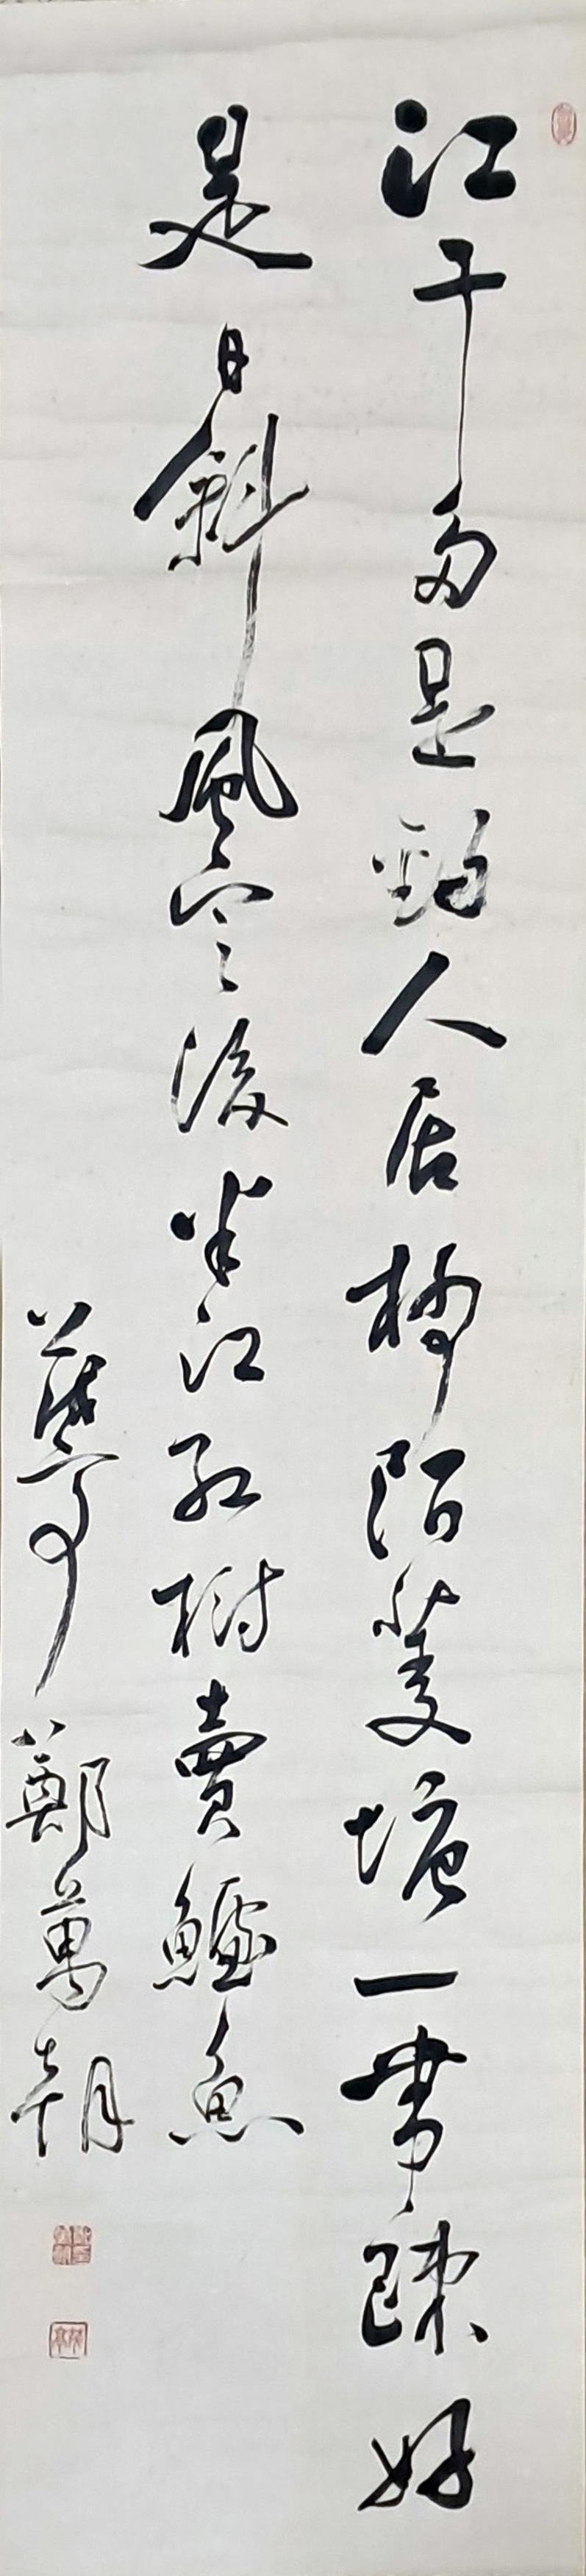 江干多是釣人居柳陌菱塘一帶疎好
是日斜風定後半江紅樹賣鱸魚
亭鄭萬朝